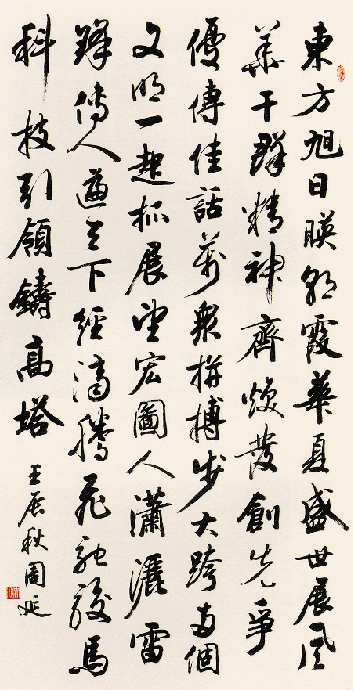 東方旭日暎朝霞華夏盛世展風
華干群精神齊焕發創先爭
優傳佳話萬衆拚搏步大跨両個
文明一起抓展望宏圖人瀟灑雷
鋒傳人遍天下經濟騰飛馳駿馬
科技引領鑄高塔 壬辰秋周延